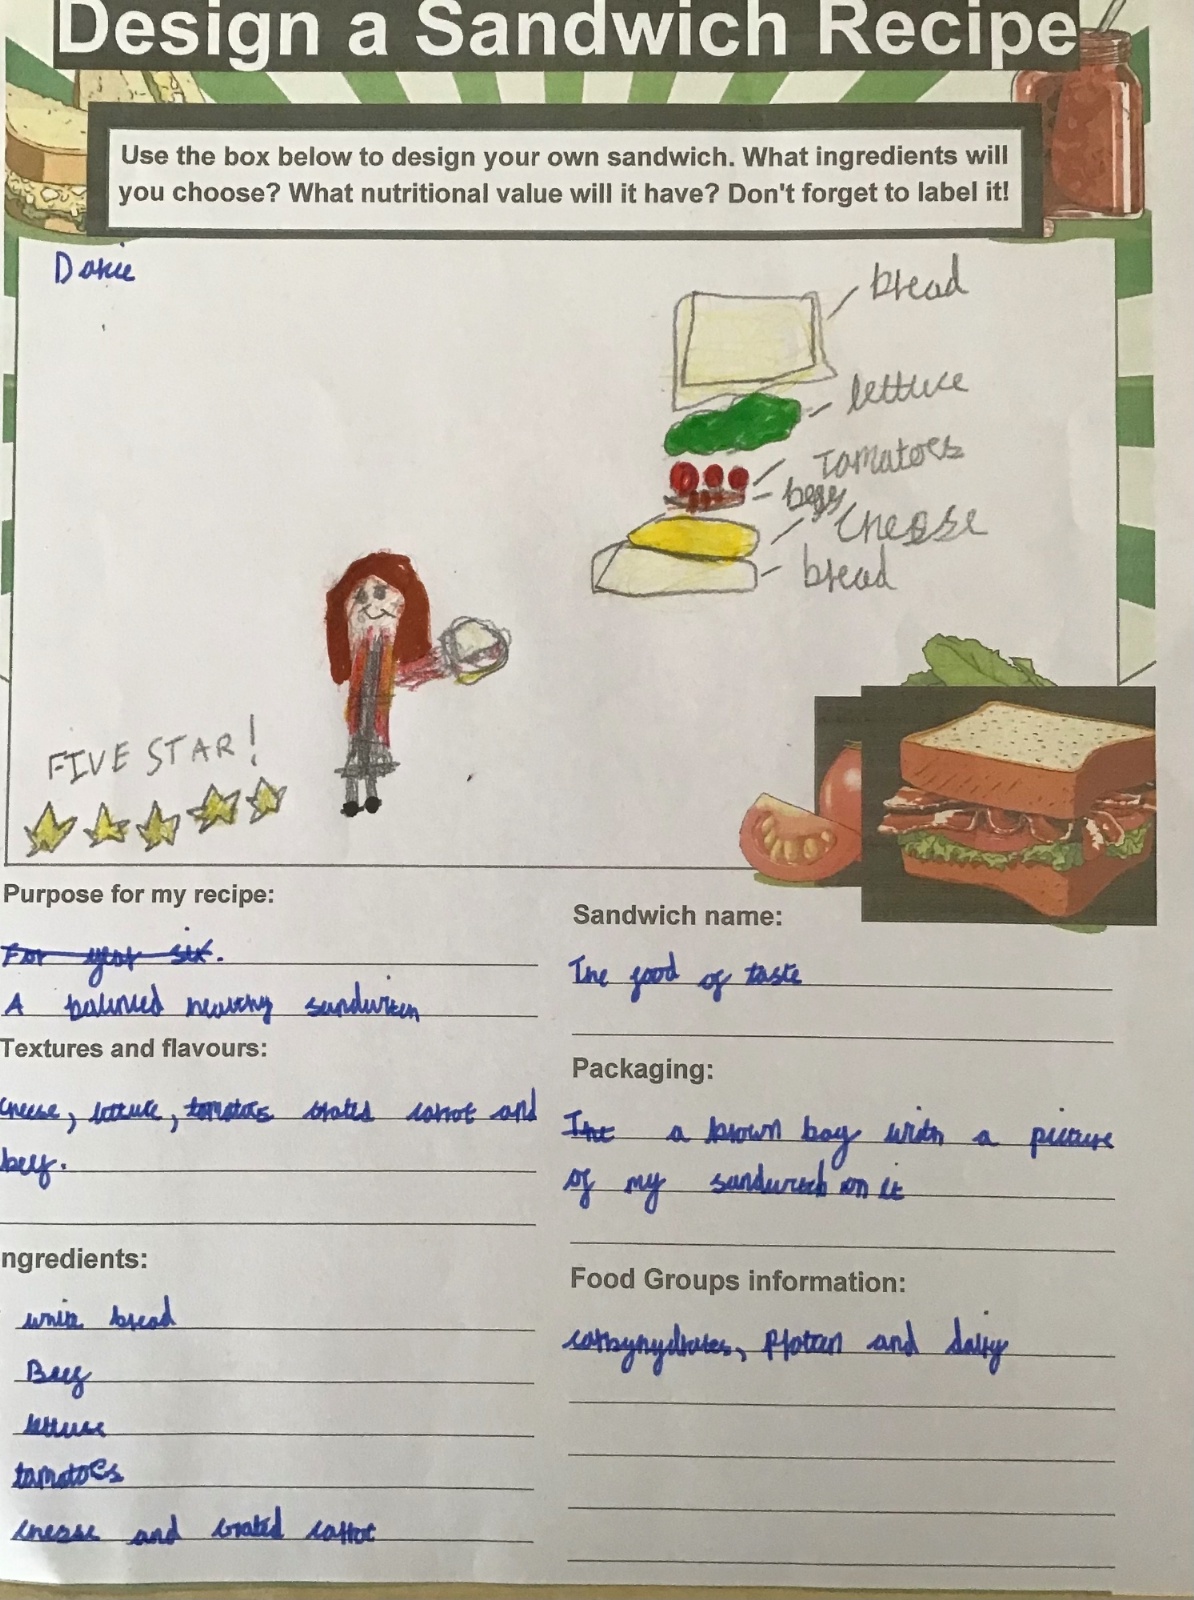 Design a Sandwich Recipe
Use the box below to design your own sandwich. What ingredients will
you choose? What nutritional value will it have? Don't forget to label it!
bread
lettuce
Tomatoes
Cheese
bread
FIVE STAR!
Purpose for my recipe:
For year six.
A healthy sandwich
Textures and flavours:
cheese, lettuce, tomatoes grated carrot and
beef.
ngredients:
white bread
Beef
lettuse
tomatoes
cheese and grated carrot
Sandwich name:
The food of taste
Packaging:
a brown bag with a picture
of my sandwich on it
Food Groups information:
carbyhydrates, Protein and dairy